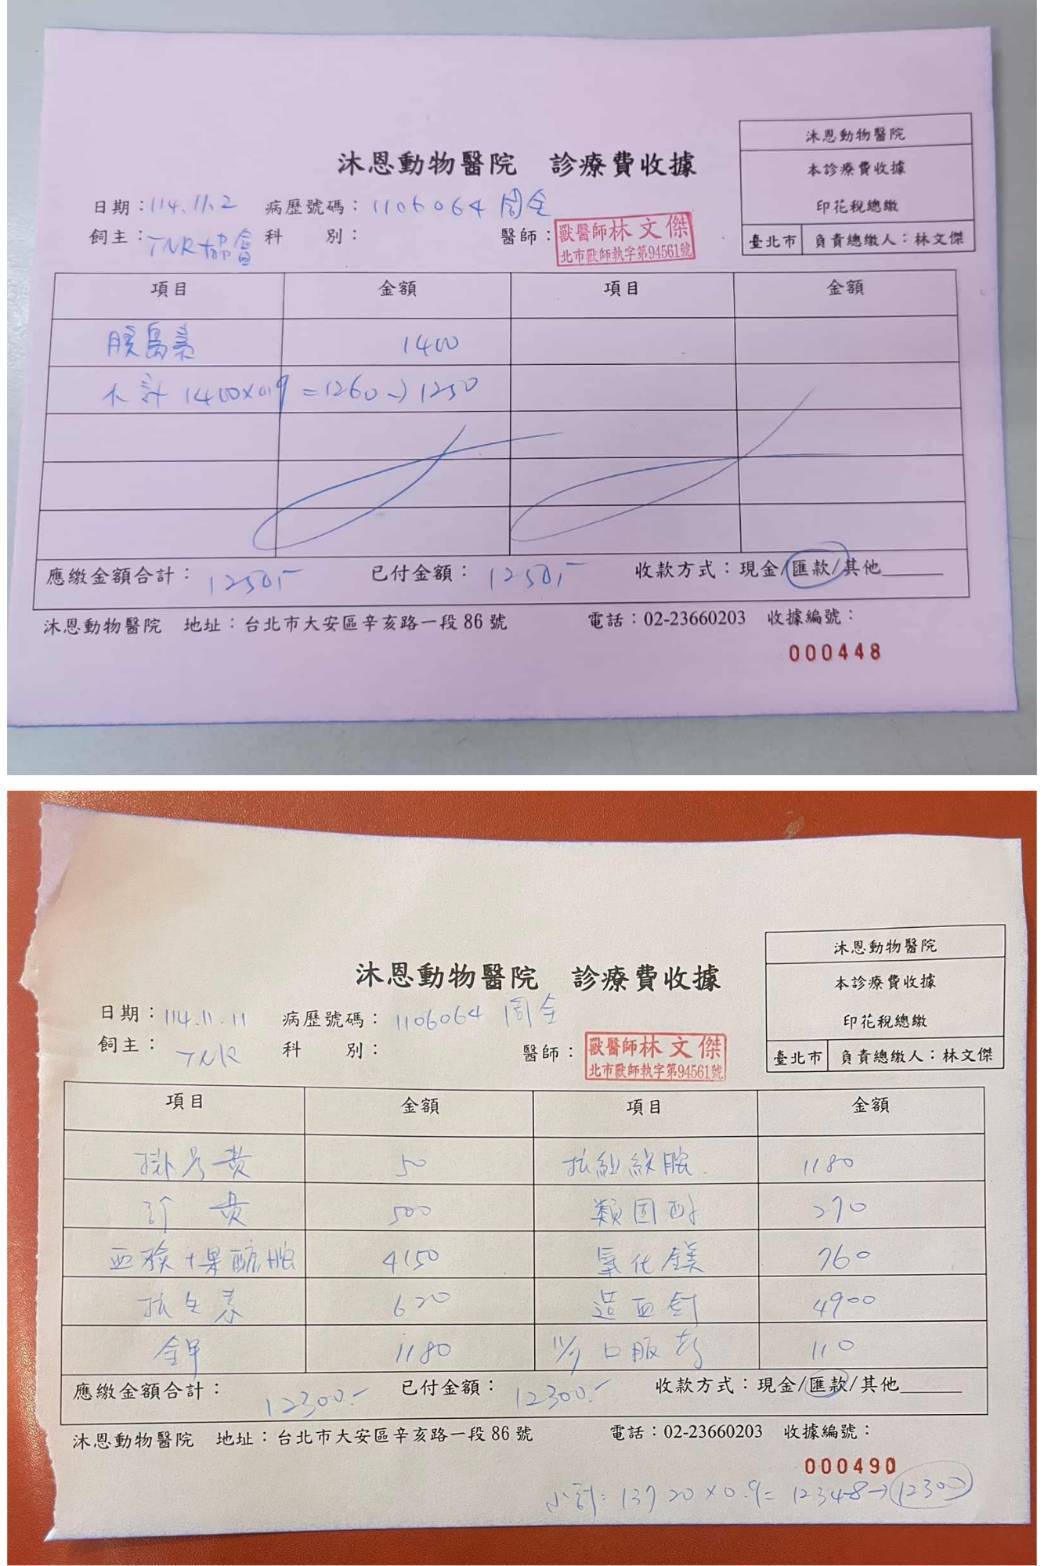 沐恩動物醫院
本診療費收據
印花稅總繳
臺北市 負責總繳人：林文傑
沐恩動物醫院 診療費收據
日期：114.11.2 病歷號碼：1106064 周全
飼主：TNR協會 科 別： 醫師：
獸醫師林文傑
北市獸師執字第94561號
項目 金額 項目 金額
胰島素 1400
小計 1400x0.9 =1260→1250
應繳金額合計：1250,- 已付金額：1250,- 收款方式：現金/匯款/其他
沐恩動物醫院 地址：台北市大安區辛亥路一段86號 電話：02-23660203 收據編號：
000448
沐恩動物醫院
本診療費收據
印花稅總繳
臺北市 負責總繳人：林文傑
沐恩動物醫院 診療費收據
日期：114.11.11 病歷號碼：1106064 周全
飼主：TNR 科 別： 醫師：
獸醫師林文傑
北市獸師執字第94561號
項目 金額 項目 金額
掛号費 50 抗組織胺 1180
診 費 500 類固醇 270
血檢+果醣胺 4150 氧化鎂 760
抗生素 620 造血針 4900
鉀 1180 口服藥 110
應繳金額合計：12300.- 已付金額：12300.- 收款方式：現金/匯款/其他
沐恩動物醫院 地址：台北市大安區辛亥路一段86號 電話：02-23660203 收據編號：
000490
小計：13720x0.9=12348→12300